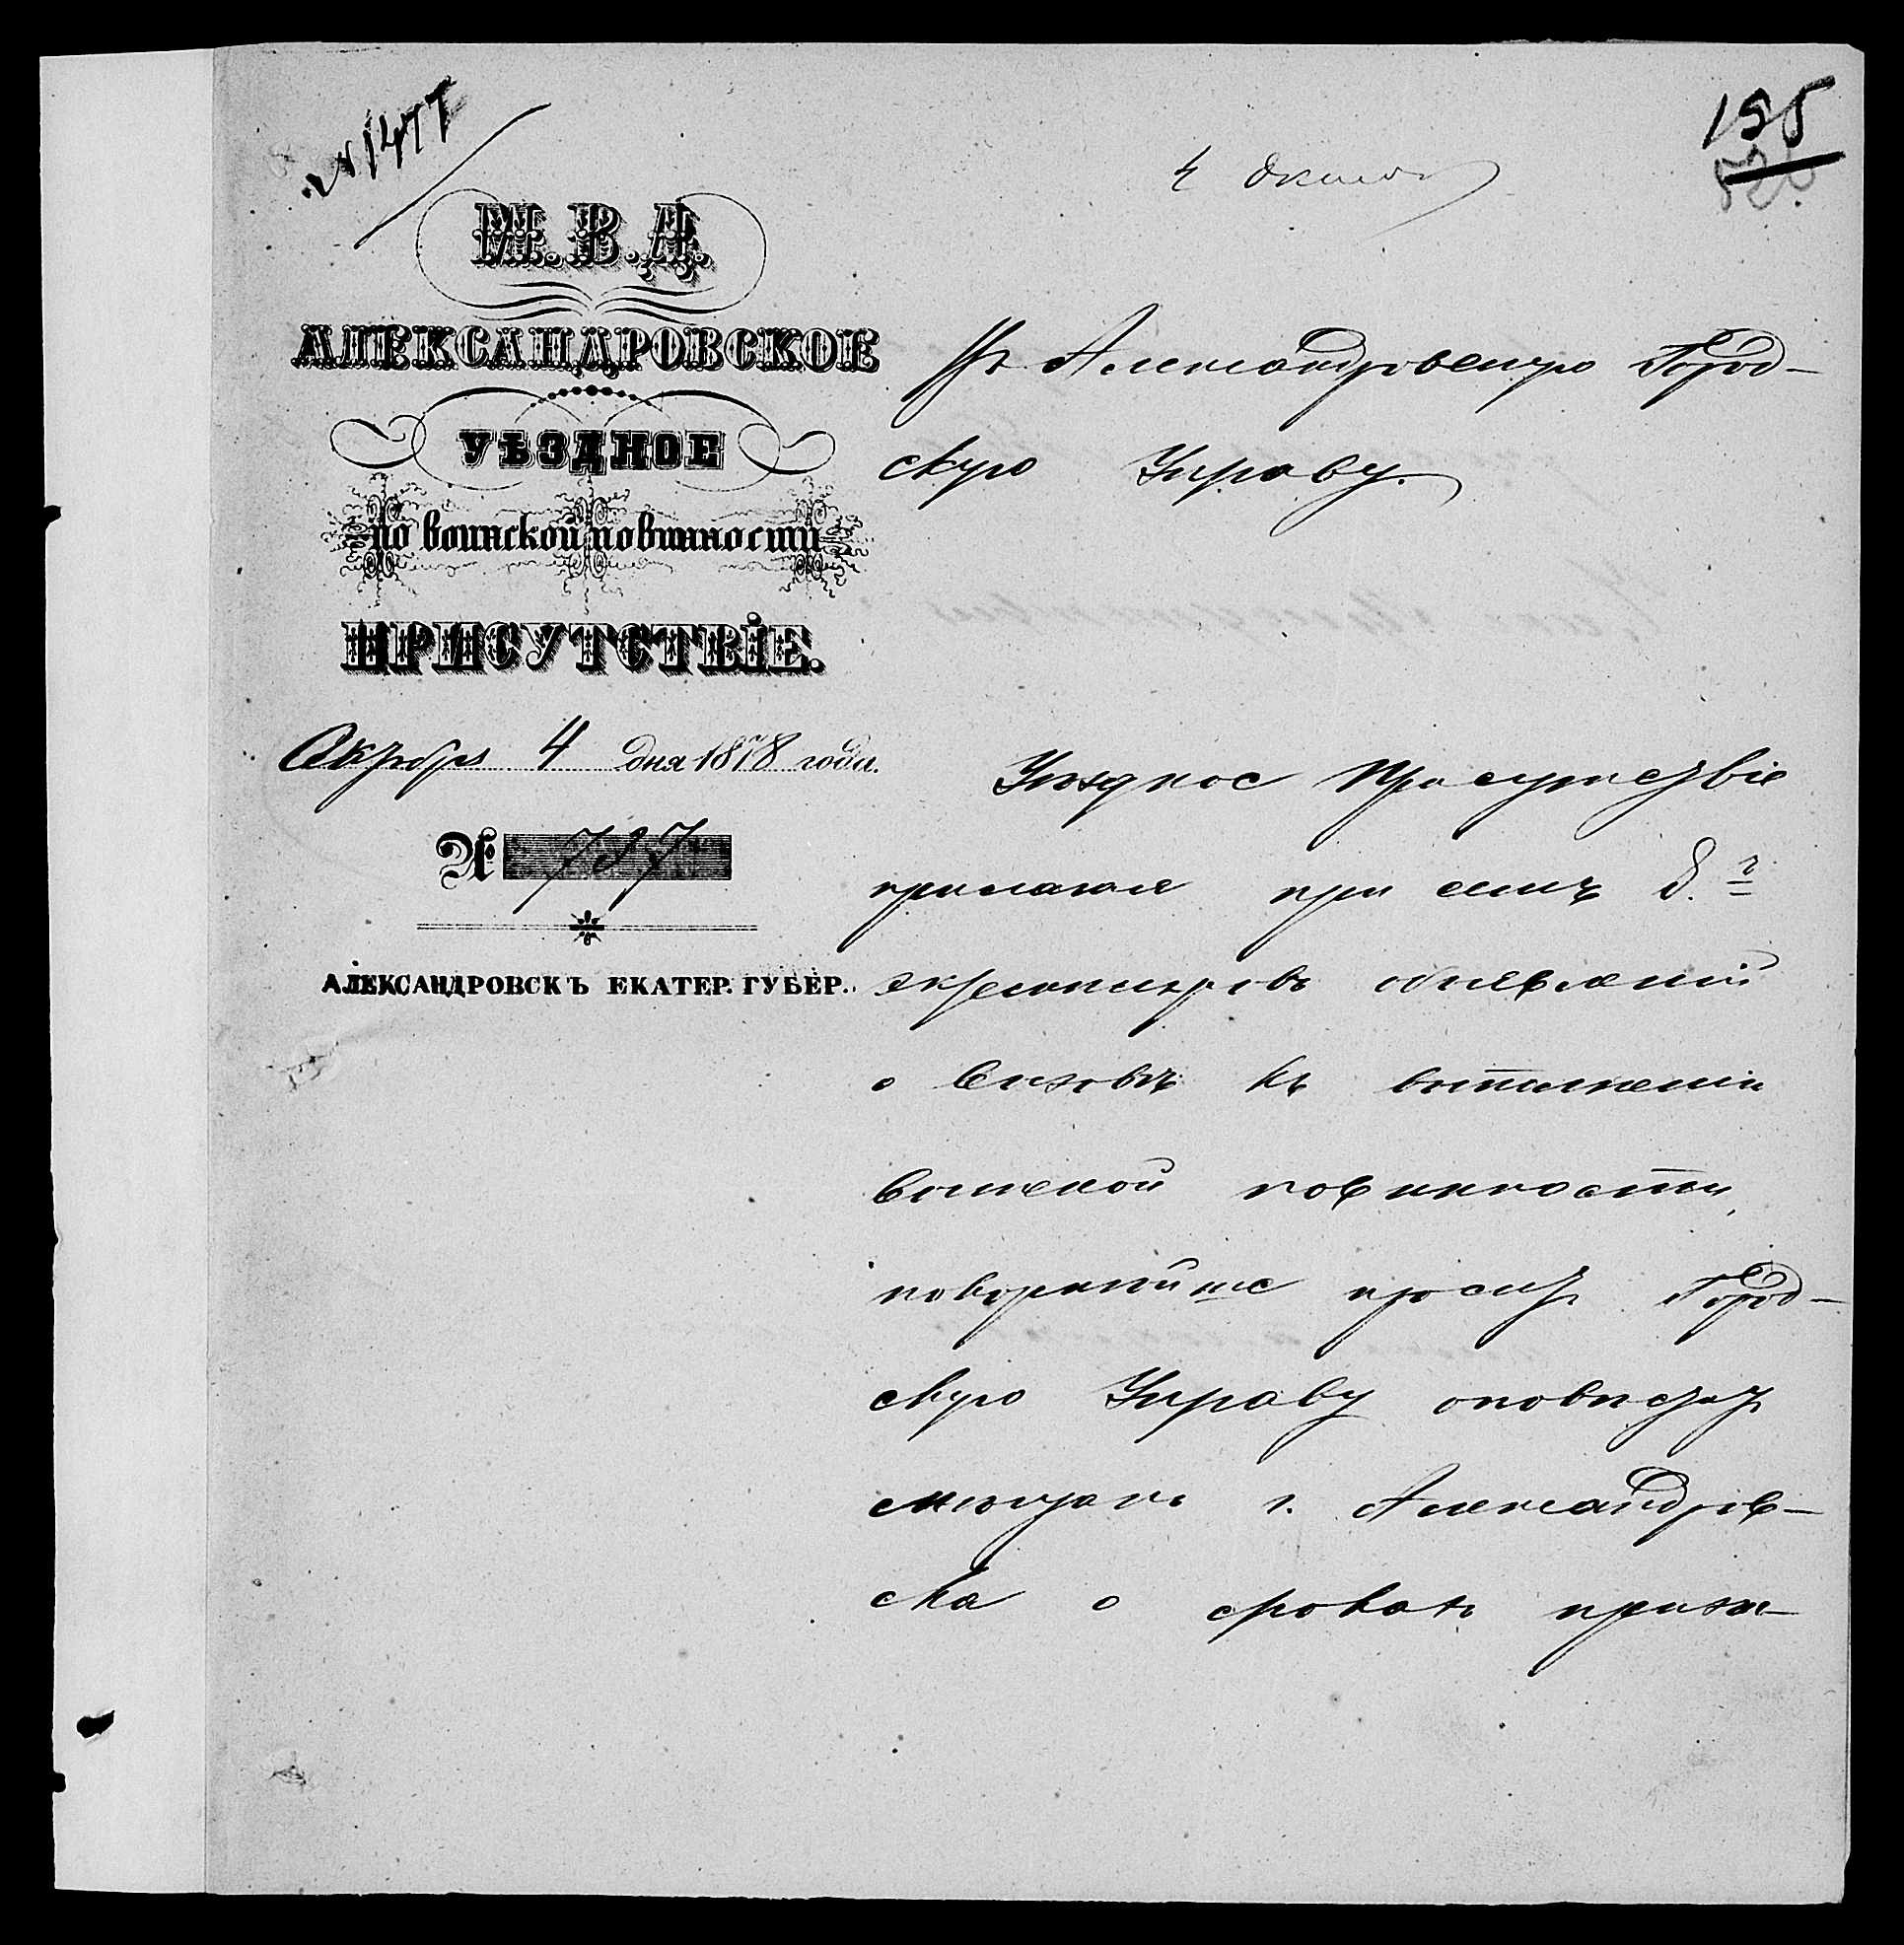 № 1477
155
4 Октяб
М. В. Д.
АЛЕКСАНДРОВСКОЕ
УѢЗДНОЕ
по воинской повинности
ПРИСУТСТВІЕ.
Октября 4 дня 1878 года.
№ 787
АЛЕКСАНДРОВСКЪ ЕКАТЕР. ГУБЕР.
Въ Александровскую Город-
скую Управу.
Уѣздное Присутствіе
прилагая при семъ
экземпляровъ объявленій
о вызовѣ къ выполненію
воинской повинности,
покорнѣйше проситъ Город-
скую Управу оповѣстить
мѣщанъ г. Александров-
ска о срокахъ призы-